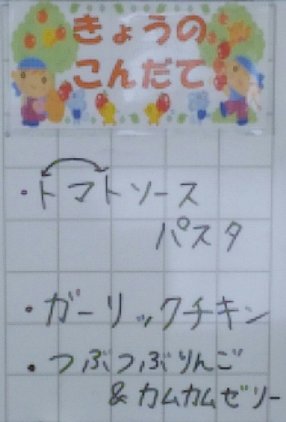 きょうの
こんだて
・トマトソース
パスタ
・ガーリックチキン
・つぶつぶりんご
&カムカムゼリー